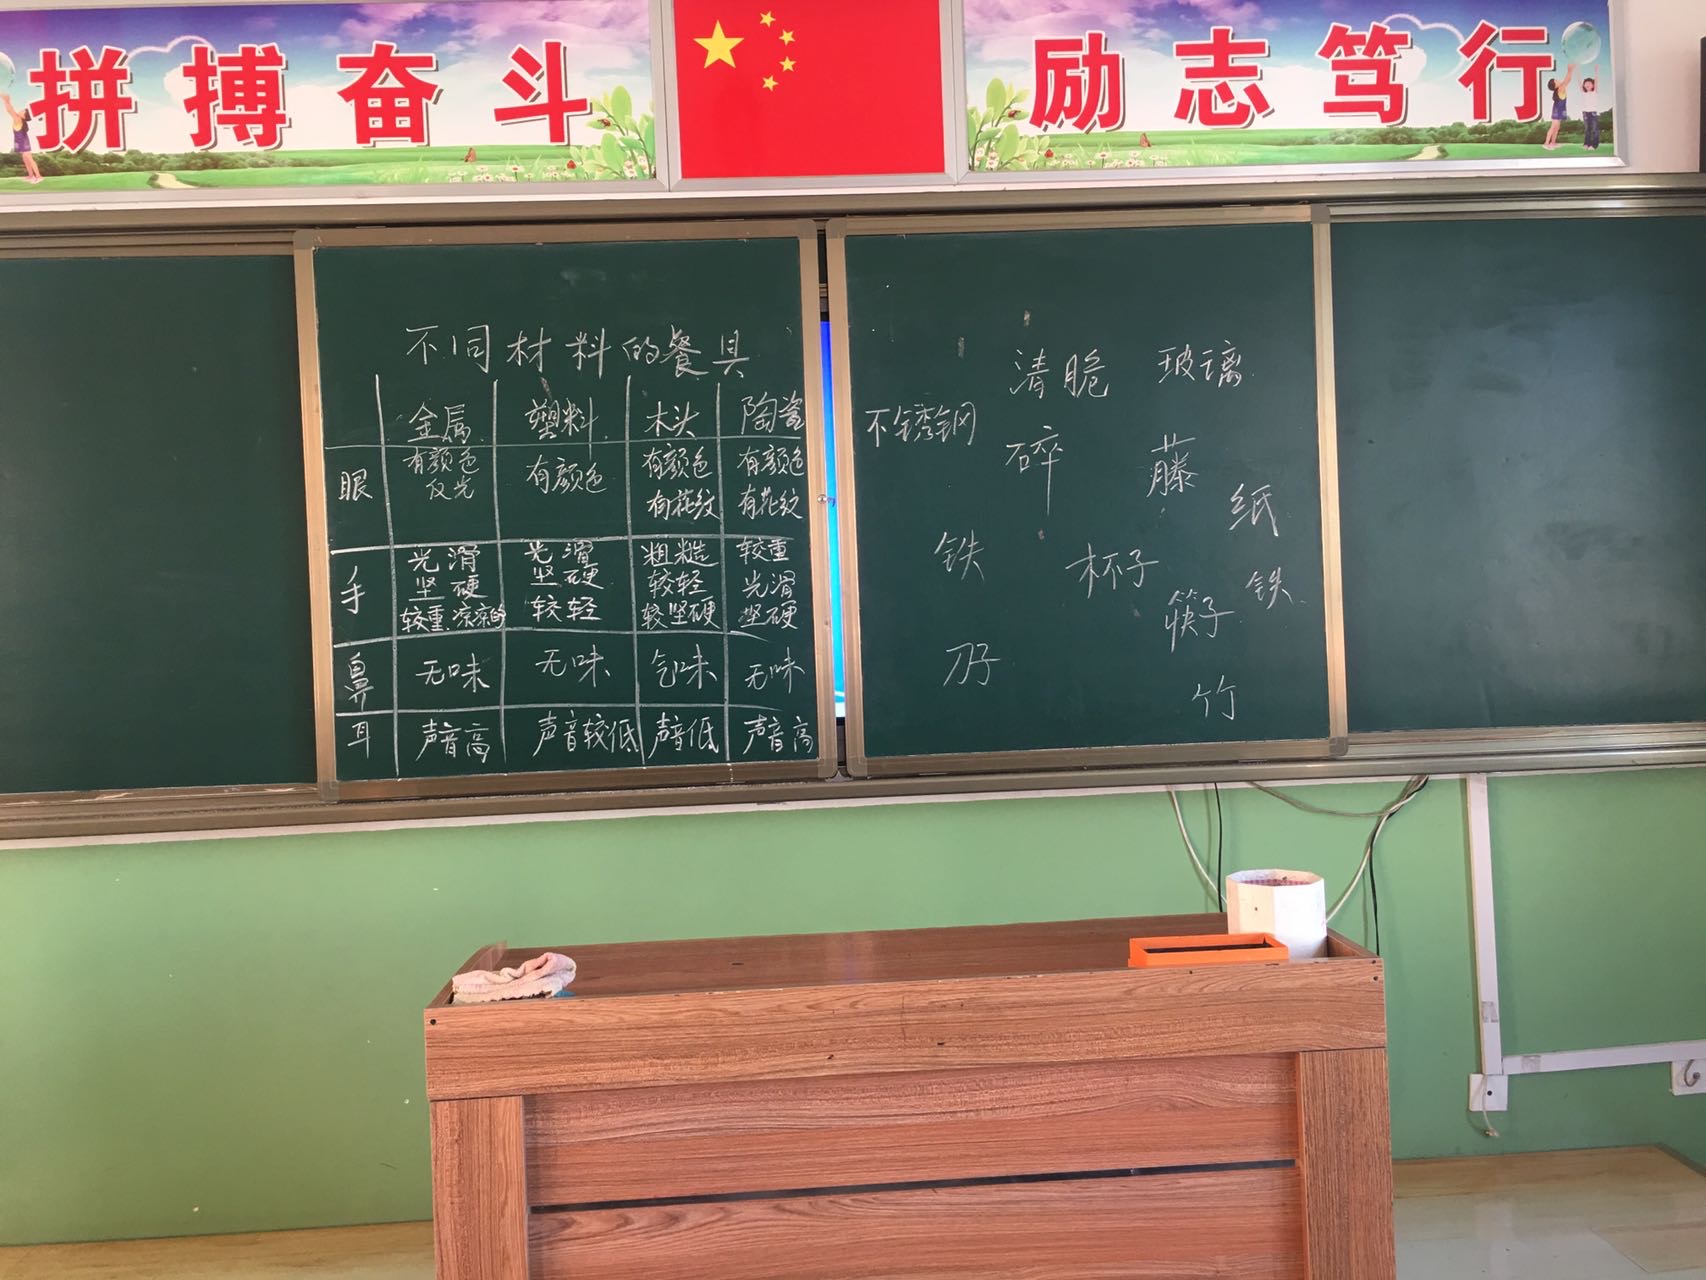 拼搏奋斗
励志笃行
不同材料的餐具
金属 塑料 木头 陶瓷
眼 有颜色 反光 有颜色 有颜色 有花纹 有颜色 有花纹
手 光滑 坚硬 较重 凉凉的 光滑 坚硬 较轻 粗糙 较轻 较坚硬 较重 光滑 坚硬
鼻 无味 无味 气味 无味
耳 声音高 声音较低 声音低 声音高
清脆 玻璃
不锈钢
碎 藤
纸
铁 杯子 铁
筷子
竹